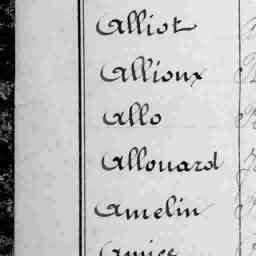 Alliot
Allioux
Allo
Allouard
Amelin